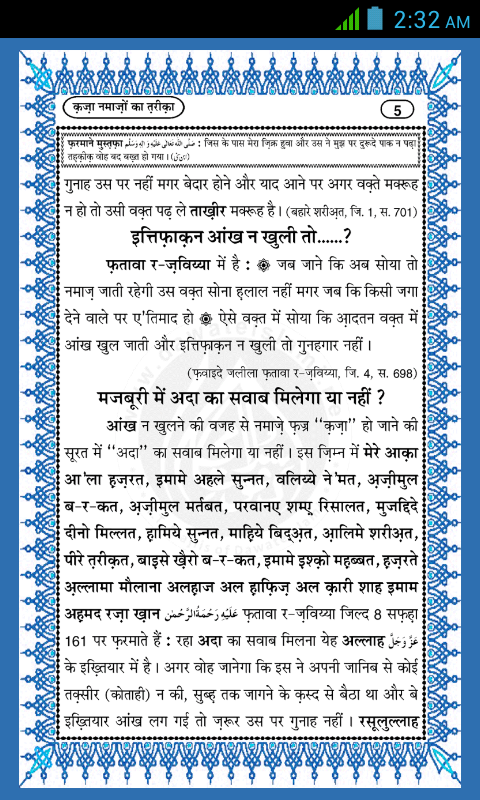 2:32 AM
क़ज़ा नमाज़ों का त़रीक़ा
5
फ़रमाने मुस्त़फ़ा صَلَّى اللهُ تَعَالٰى عَلَيْهِ وَاٰلِهٖ وَسَلَّم : जिस के पास मेरा ज़िक्र हुवा और उस ने मुझ पर दुरूदे पाक न पढ़ा
तह़क़ीक़ वोह बद बख़्त हो गया ।
गुनाह उस पर नहीं मगर बेदार होने और याद आने पर अगर वक़्ते मक्रूह
न हो तो उसी वक़्त पढ़ ले ताख़ीर मक्रूह है । (बहारे शरीअ़त, जि. 1, स. 701)
इत्तिफ़ाक़न आंख न खुली तो......?
फ़तावा र-ज़विय्या में है : ۞ जब जाने कि अब सोया तो
नमाज़ जाती रहेगी उस वक़्त सोना ह़लाल नहीं मगर जब कि किसी जगा
देने वाले पर ए'तिमाद हो ۞ ऐसे वक़्त में सोया कि आ़दतन वक़्त में
आंख खुल जाती और इत्तिफ़ाक़न न खुली तो गुनहगार नहीं ।
(फ़वाइदे जलीला फ़तावा र-ज़विय्या, जि. 4, स. 698)
मजबूरी में अदा का सवाब मिलेगा या नहीं ?
आंख न खुलने की वजह से नमाज़े फ़ज्र ‘‘क़ज़ा’’ हो जाने की
सूरत में ‘‘अदा’’ का सवाब मिलेगा या नहीं । इस ज़िम्न में मेरे आक़ा
आ'ला ह़ज़रत, इमामे अहले सुन्नत, वलिय्ये ने'मत, अ़ज़ीमुल
ब-र-कत, अ़ज़ीमुल मर्तबत, परवानए शम्ए़ रिसालत, मुजद्दिदे
दीनो मिल्लत, ह़ामिये सुन्नत, माह़िये बिद्अ़त, आ़लिमे शरीअ़त,
पीरे त़रीक़त, बाइसे ख़ैरो ब-र-कत, इमामे इश्क़ो मह़ब्बत, ह़ज़रते
अ़ल्लामा मौलाना अलह़ाज अल ह़ाफ़िज़ अल क़ारी शाह इमाम
अह़मद रज़ा ख़ान عَلَيْهِ رَحْمَةُ الرَّحْمٰن फ़तावा र-ज़विय्या जिल्द 8 सफ़ह़ा
161 पर फ़रमाते हैं : रहा अदा का सवाब मिलना येह अल्लाह عَزَّ وَجَلَّ
के इख़्तियार में है । अगर वोह जानेगा कि इस ने अपनी जानिब से कोई
तक़्सीर (कोताही) न की, सुब्ह़ तक जागने के क़स्द से बैठा था और बे
इख़्तियार आंख लग गई तो ज़रूर उस पर गुनाह नहीं । रसूलुल्लाह